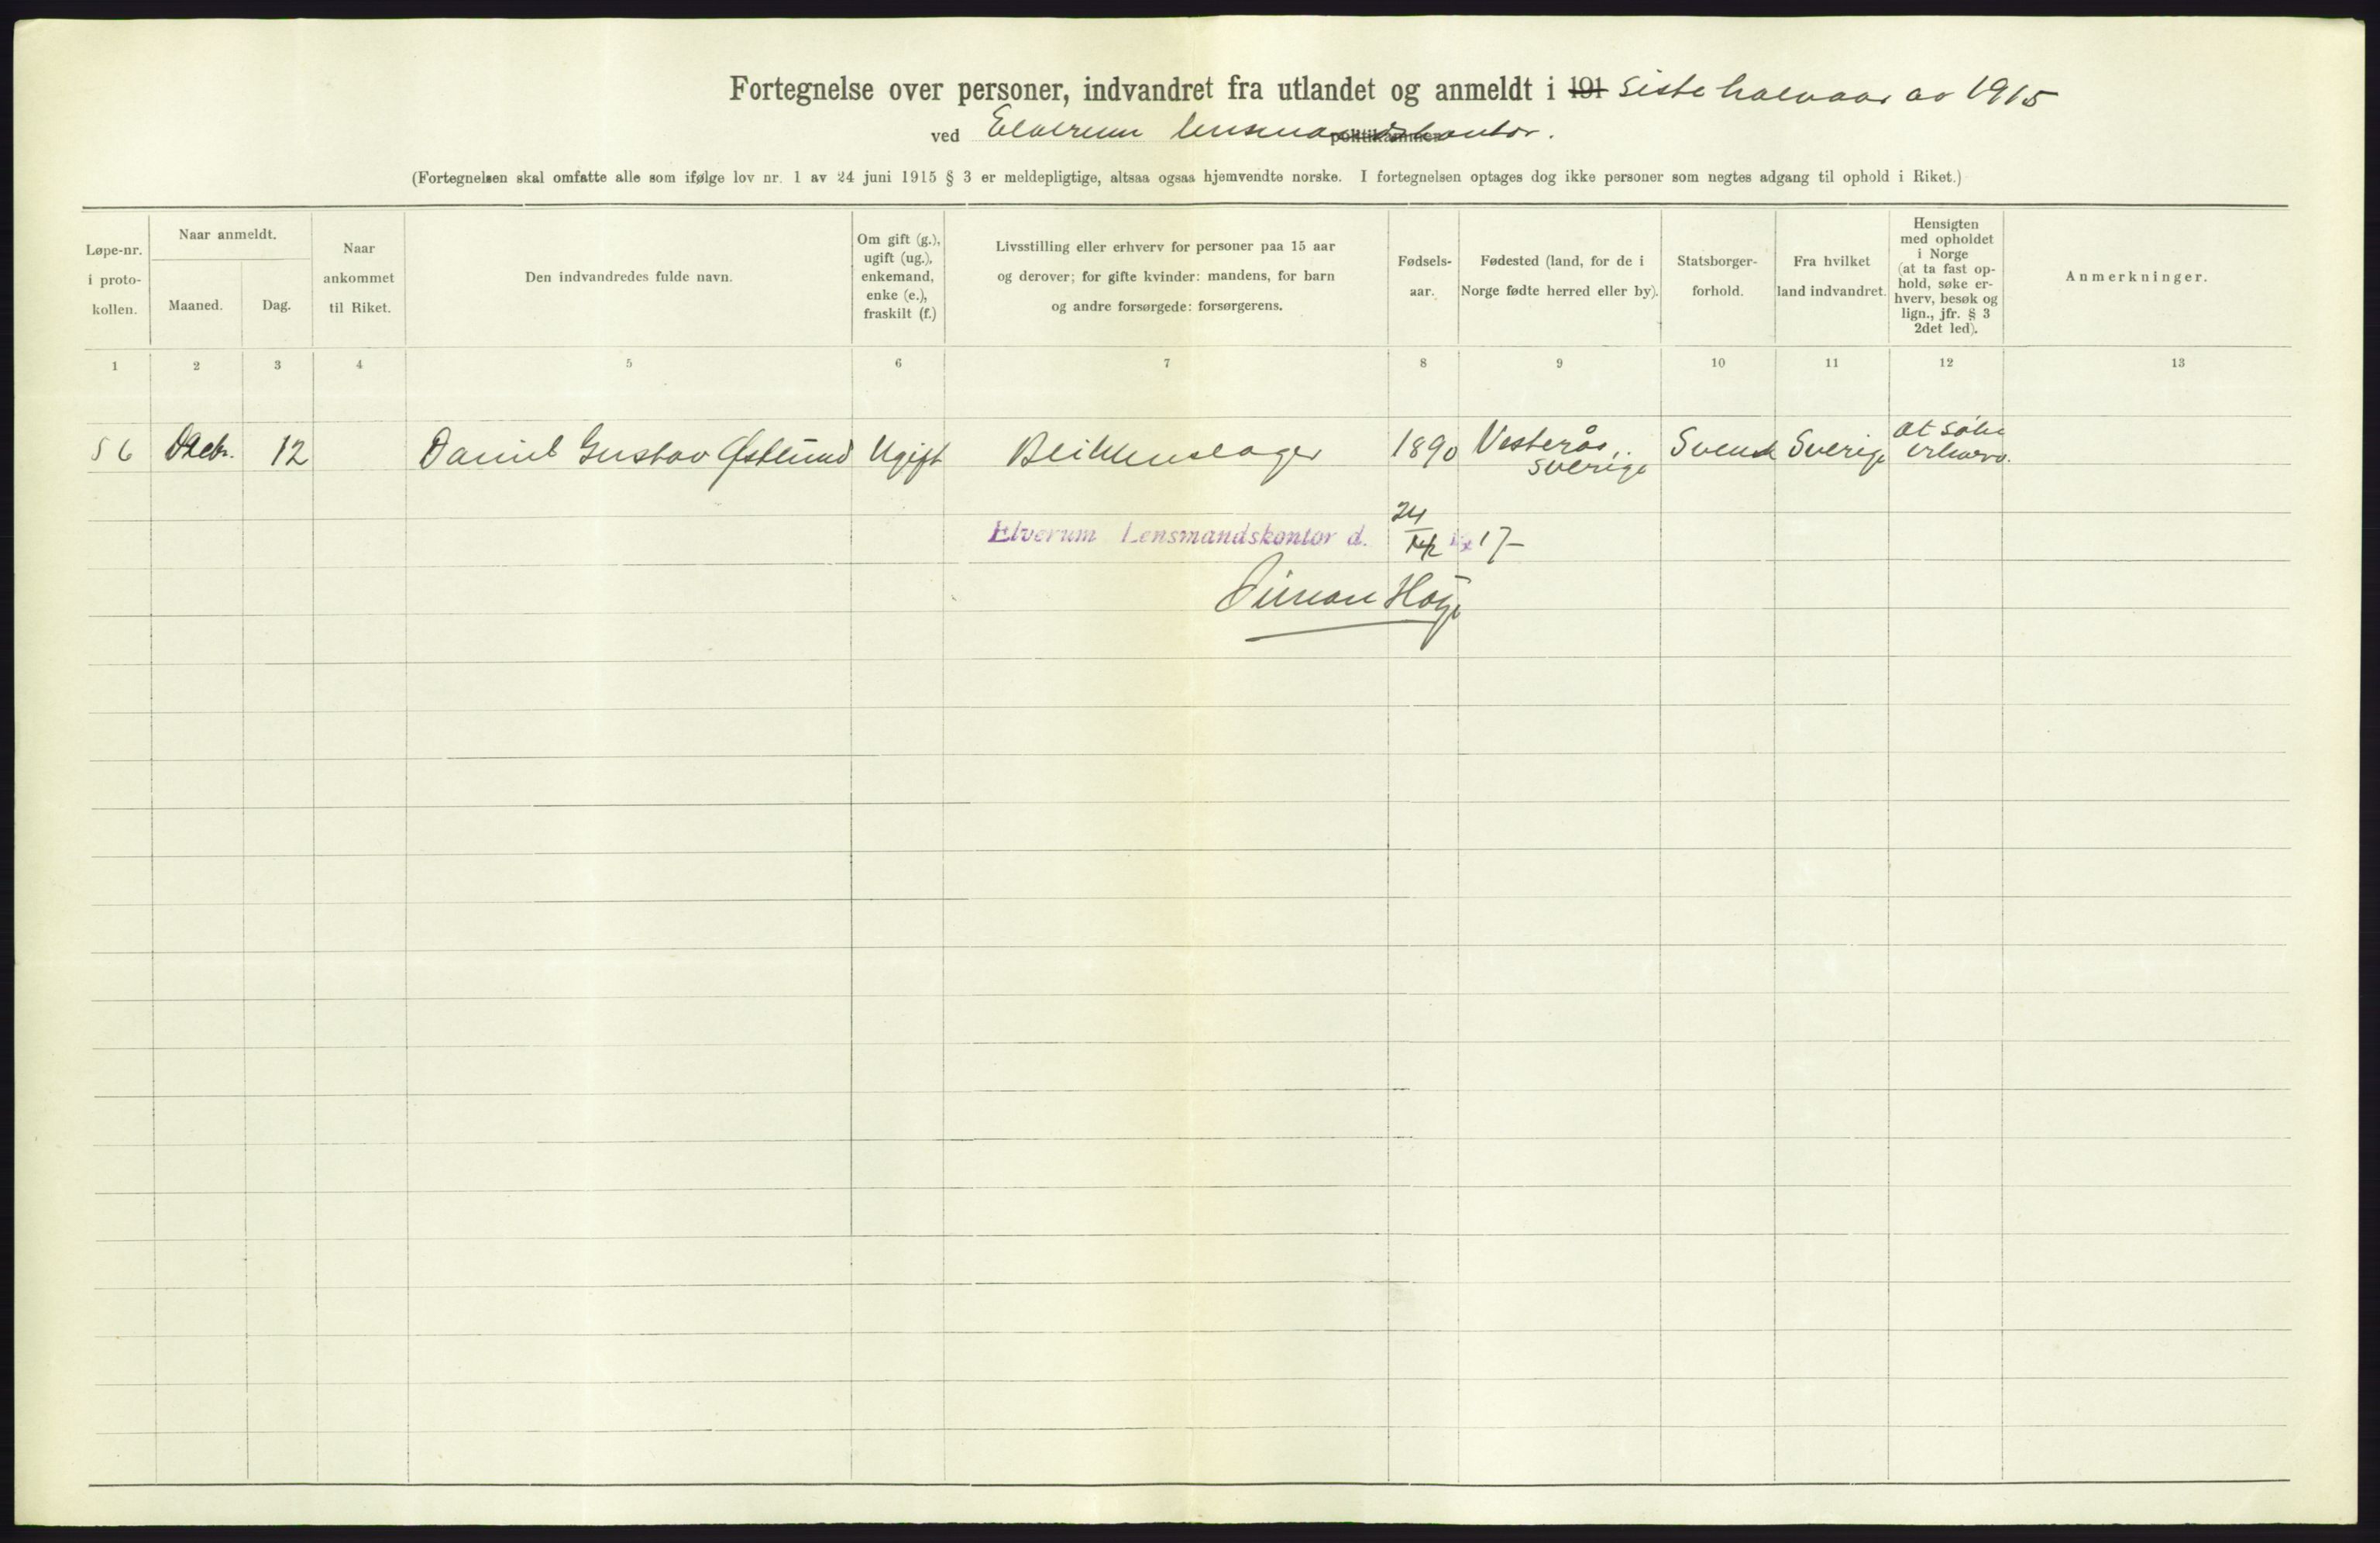 Fortegnelse over personer, indvandret fra utlandet og anmeldt i 191 siste halvaar av 1915
ved Elverum lensmandskontor. politikammer
(Fortegnelsen skal omfatte alle som ifølge lov nr. 1 av 24 juni 1915 § 3 er meldepligtige, altsaa ogsaa hjemvendte norske. I fortegnelsen optages dog ikke personer som negtes adgang til ophold i Riket.)
Løpe-nr.
i proto-
kollen.
Naar anmeldt.
Maaned.
Dag.
Naar
ankommet
til Riket.
Den indvandredes fulde navn.
Om gift (g.),
ugift (ug.),
enkemand,
enke (e.),
fraskilt (f.)
Livsstilling eller erhverv for personer paa 15 aar
og derover; for gifte kvinder: mandens, for barn
og andre forsørgede: forsørgerens.
Fødsels-
aar.
Fødested (land, for de i
Norge fødte herred eller by).
Statsborger-
forhold.
Fra hvilket
land indvandret.
Hensigten
med opholdet
i Norge
(at ta fast op-
hold, søke er-
hverv, besøk og
lign., jfr. § 3
2det led).
Anmerkninger.
1 2 3 4 5 6 7 8 9 10 11 12 13
56 Decbr. 12 Daniel Gustav Østlund Ugift Blikkenslager 1890 Vesterås, Svensk Sverige at søke
Sverige erhverv.
Elverum Lensmandskontor d. 24/12 19 17
Simon Høye